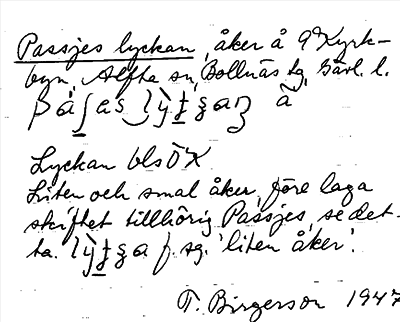 Passjes lyckan, åker å 9 Kyrk-
byn, Alfta sn, Bollnäs tg, Gävl. l.
Lyckan bls ÖX
Liten och smal åker, före laga
skiftet tillhörig Passjes, se det-
ta. f. sg. 'liten åker'.
T. Birgerson 1947